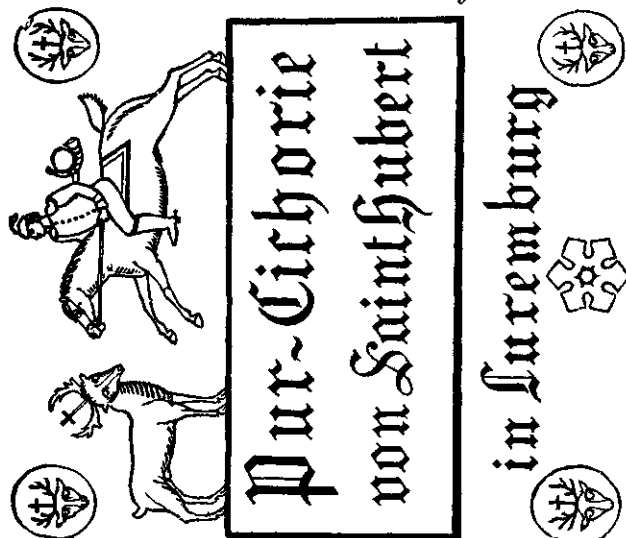 Pur-Cichorie
von Saint Hubert
in Luxemburg